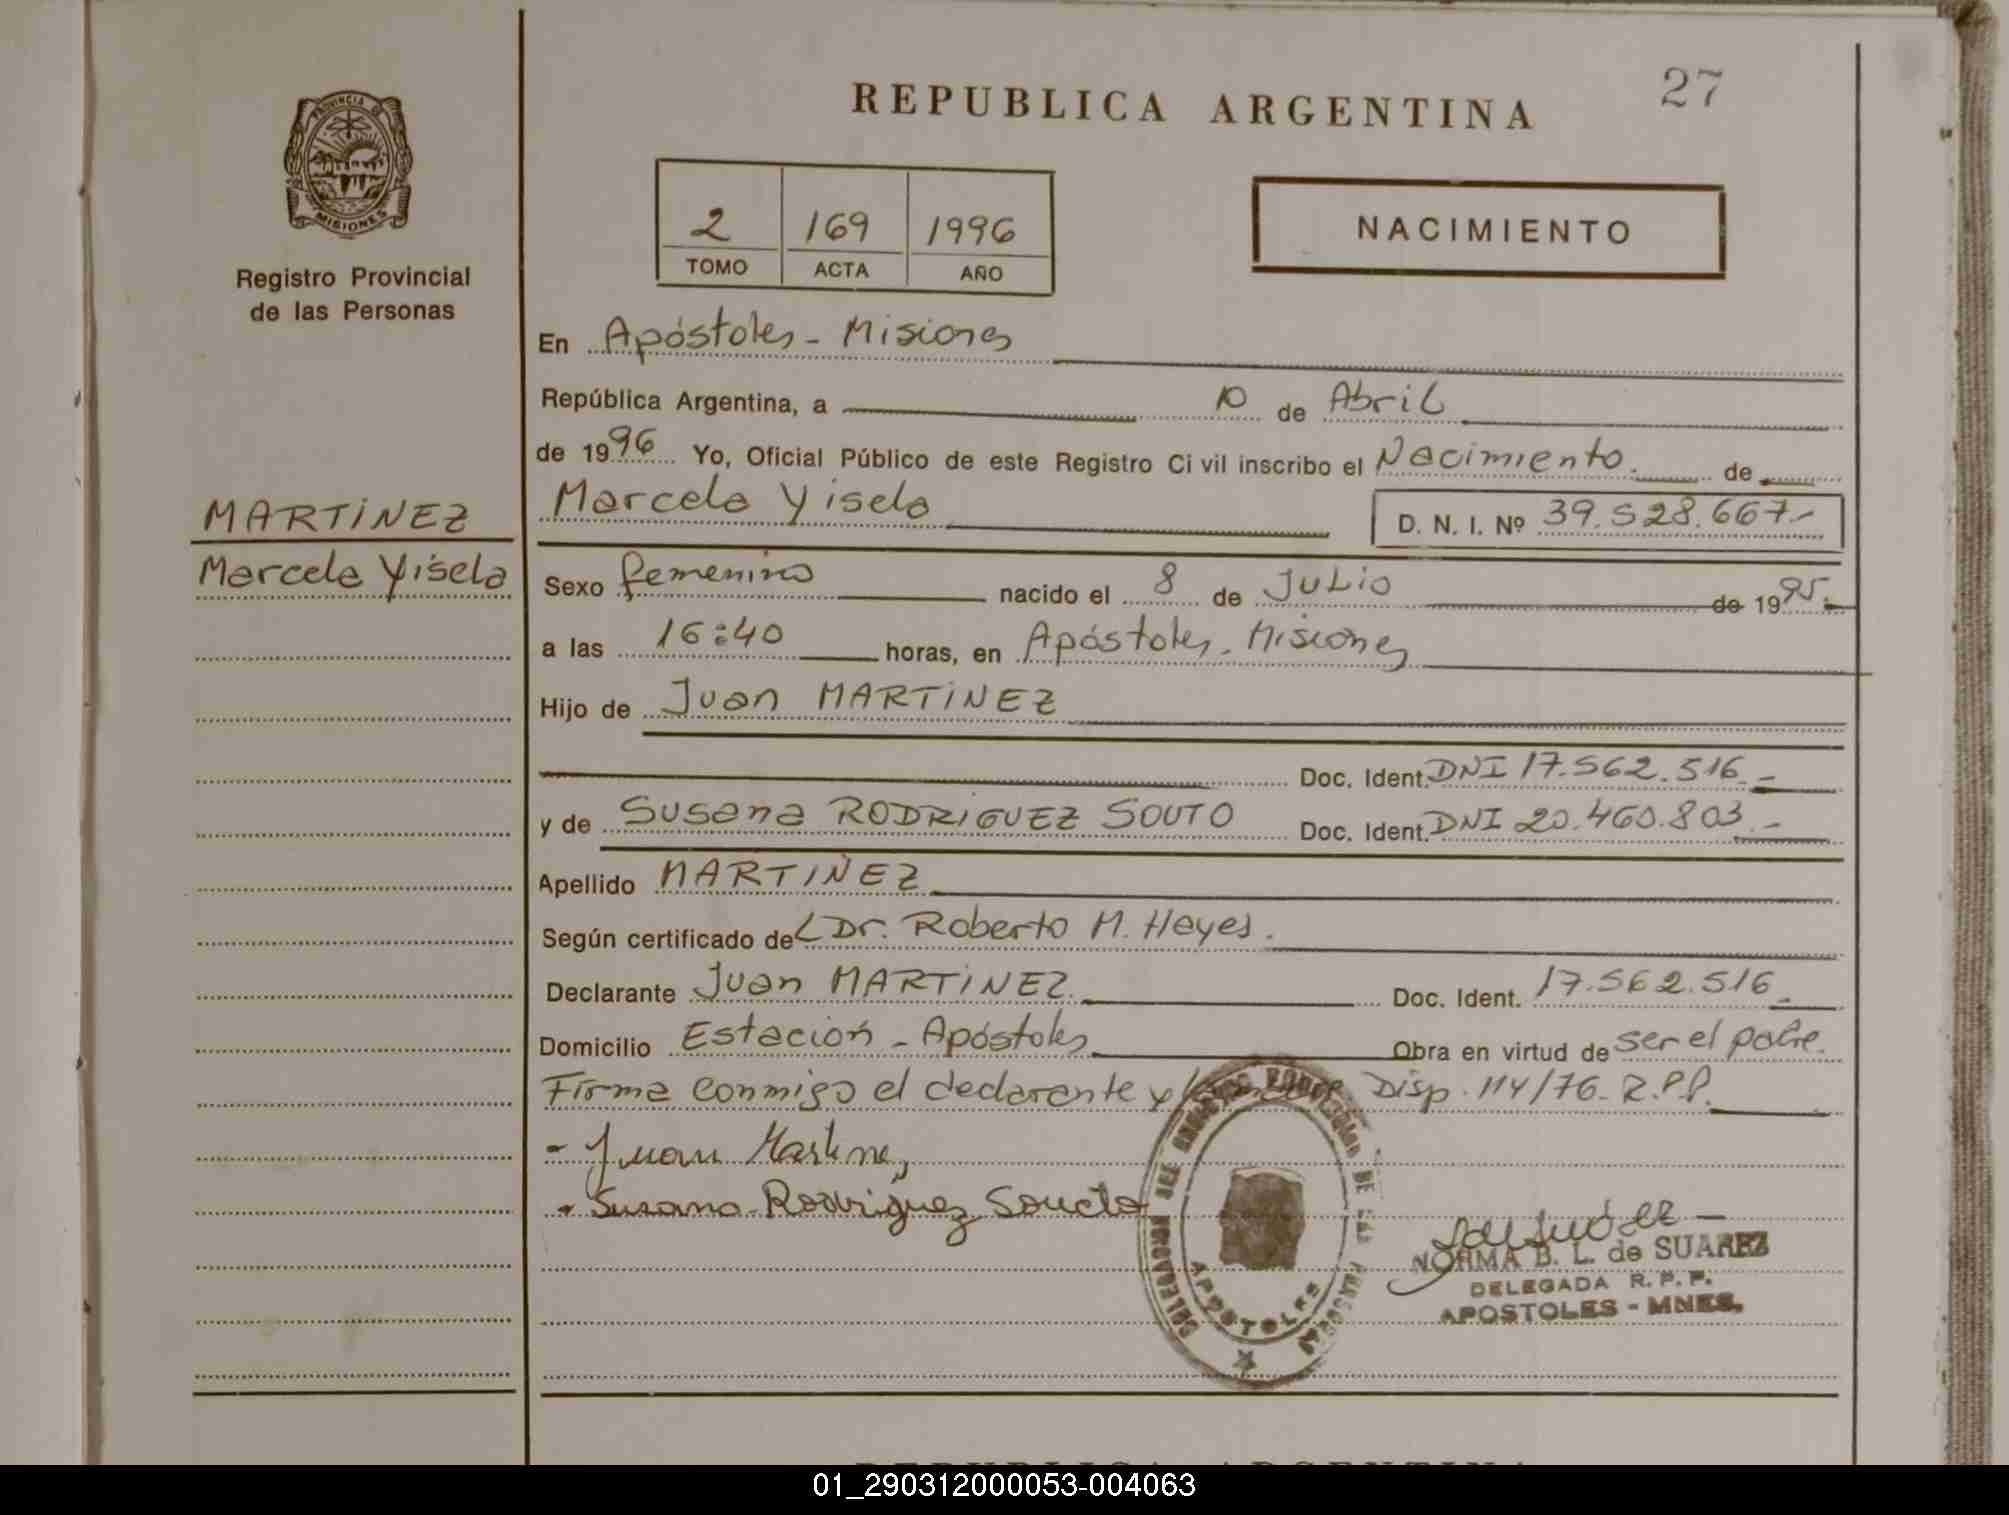 PROVINCIA DE
MISIONES
Registro Provincial
de las Personas
MARTINEZ
Marcela Yisela
REPUBLICA ARGENTINA
27
2 169 1996
TOMO ACTA AÑO
NACIMIENTO
En Apóstoles - Misiones
República Argentina, a 10 de Abril
de 1996 Yo, Oficial Público de este Registro Civil inscribo el Nacimiento. de
Marcela Yisela D. N. I. Nº 39.528.667.-
Sexo femenino nacido el 8 de Julio de 1995.
a las 16:40 horas, en Apóstoles - Misiones
Hijo de Juan MARTINEZ
Doc. Ident. DNI 17.562.516.-
y de Susana RODRIGUEZ SOUTO Doc. Ident. DNI 20.460.803.-
Apellido MARTINEZ
Según certificado de L Dr. Roberto M. Heyes.
Declarante Juan MARTINEZ. Doc. Ident. 17.562.516.
Domicilio Estación - Apóstoles Obra en virtud de ser el padre.
Firma conmigo el declarante y Disp. 114/76. R.P.P.
- Juan Martinez
- Susana Rodriguez Soucto
DELEGADA DEL REGISTRO DE LAS PERSONAS
APOSTOLES
NORMA B. L. de SUAREZ
DELEGADA R. P. P.
APOSTOLES - MNES.
REPUBLICA ARGENTINA
01_290312000053-004063